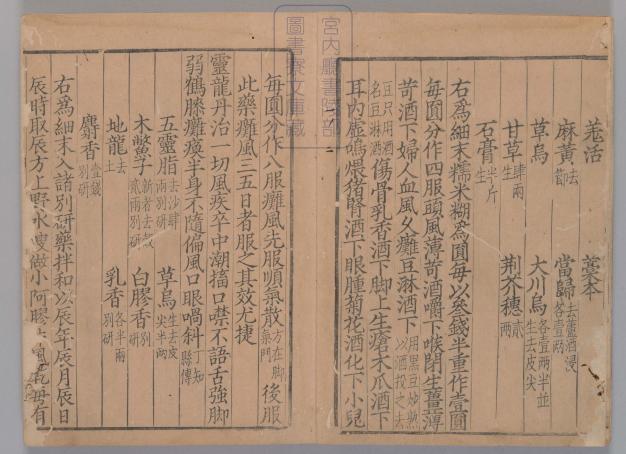 羗活
藁本
麻黃去節
當歸去蘆酒浸各壹兩
草烏
大川烏各壹兩半並生去皮尖
甘草肆兩生
荆芥穗貳兩
石膏半斤生
右爲細末糯米糊爲圓每以叁錢半重作壹圓
每圓分作四服頭風薄荷酒嚼下喉閉生薑薄
荷酒下婦人血風久癱豆淋酒下用黑豆炒熟以酒投之去
豆只用酒名豆淋酒傷骨乳香酒下脚上生瘡木瓜酒下
耳內虛鳴煨猪腎酒下眼腫菊花酒化下小兒
每圓分作八服癱風先服順氣散方在脚氣門後服
此藥癱風三五日者服之其效尤捷
靈龍丹治一切風疾卒中潮搐口禁不語舌強脚
弱鶴膝癱瘓半身不隨偏風口眼喎斜丁知縣傳
五靈脂去沙肆兩別研
草烏生去皮尖半兩
木鱉子新者去殼貳兩別研
白膠香別研
地龍去土
乳香各半兩別研
麝香壹錢別研
右爲細末入諸別研藥拌和以辰年辰月辰日
辰時取辰方上野水叟做小阿膠
每有
宮內廳書陵部
圖書寮文庫藏